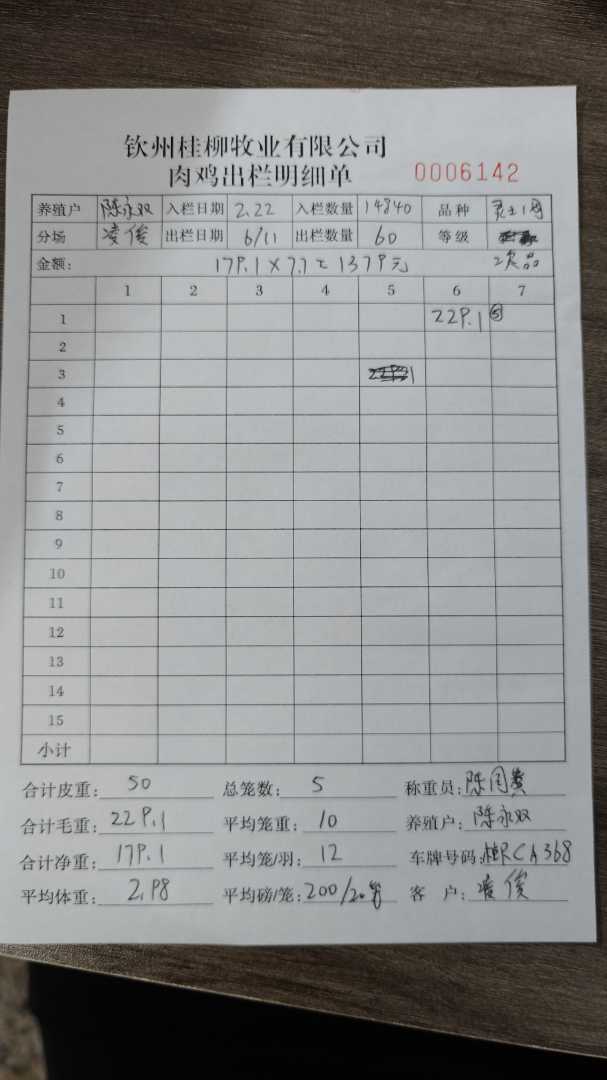 钦州桂柳牧业有限公司
肉鸡出栏明细单 0006142
养殖户 陈永双 入栏日期 2.22 入栏数量 14840 品种
分场 凌俊 出栏日期 6/11 出栏数量 60 等级
金额: 179.1×7.7=1379元 次品
1 2 3 4 5 6 7
1 229.1 ⑤
2
3
4
5
6
7
8
9
10
11
12
13
14
15
小计
合计皮重: 50 总笼数: 5 称重员: 陈
合计毛重: 229.1 平均笼重: 10 养殖户: 陈永双
合计净重: 179.1 平均笼/羽: 12 车牌号码: 桂RCA368
平均体重: 2.98 平均磅/笼: 200/20 客户: 凌俊